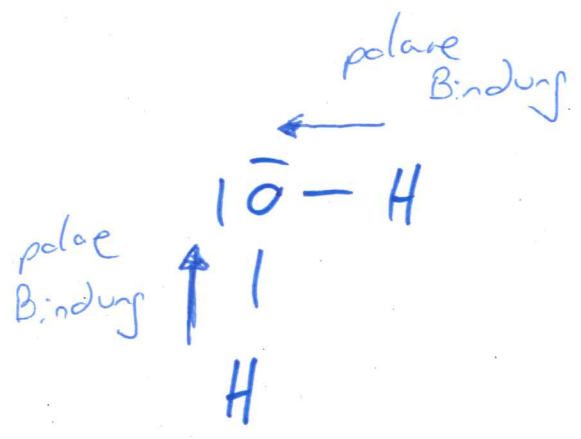 polare
Bindung
|O̅ – H
polare
Bindung
|
H